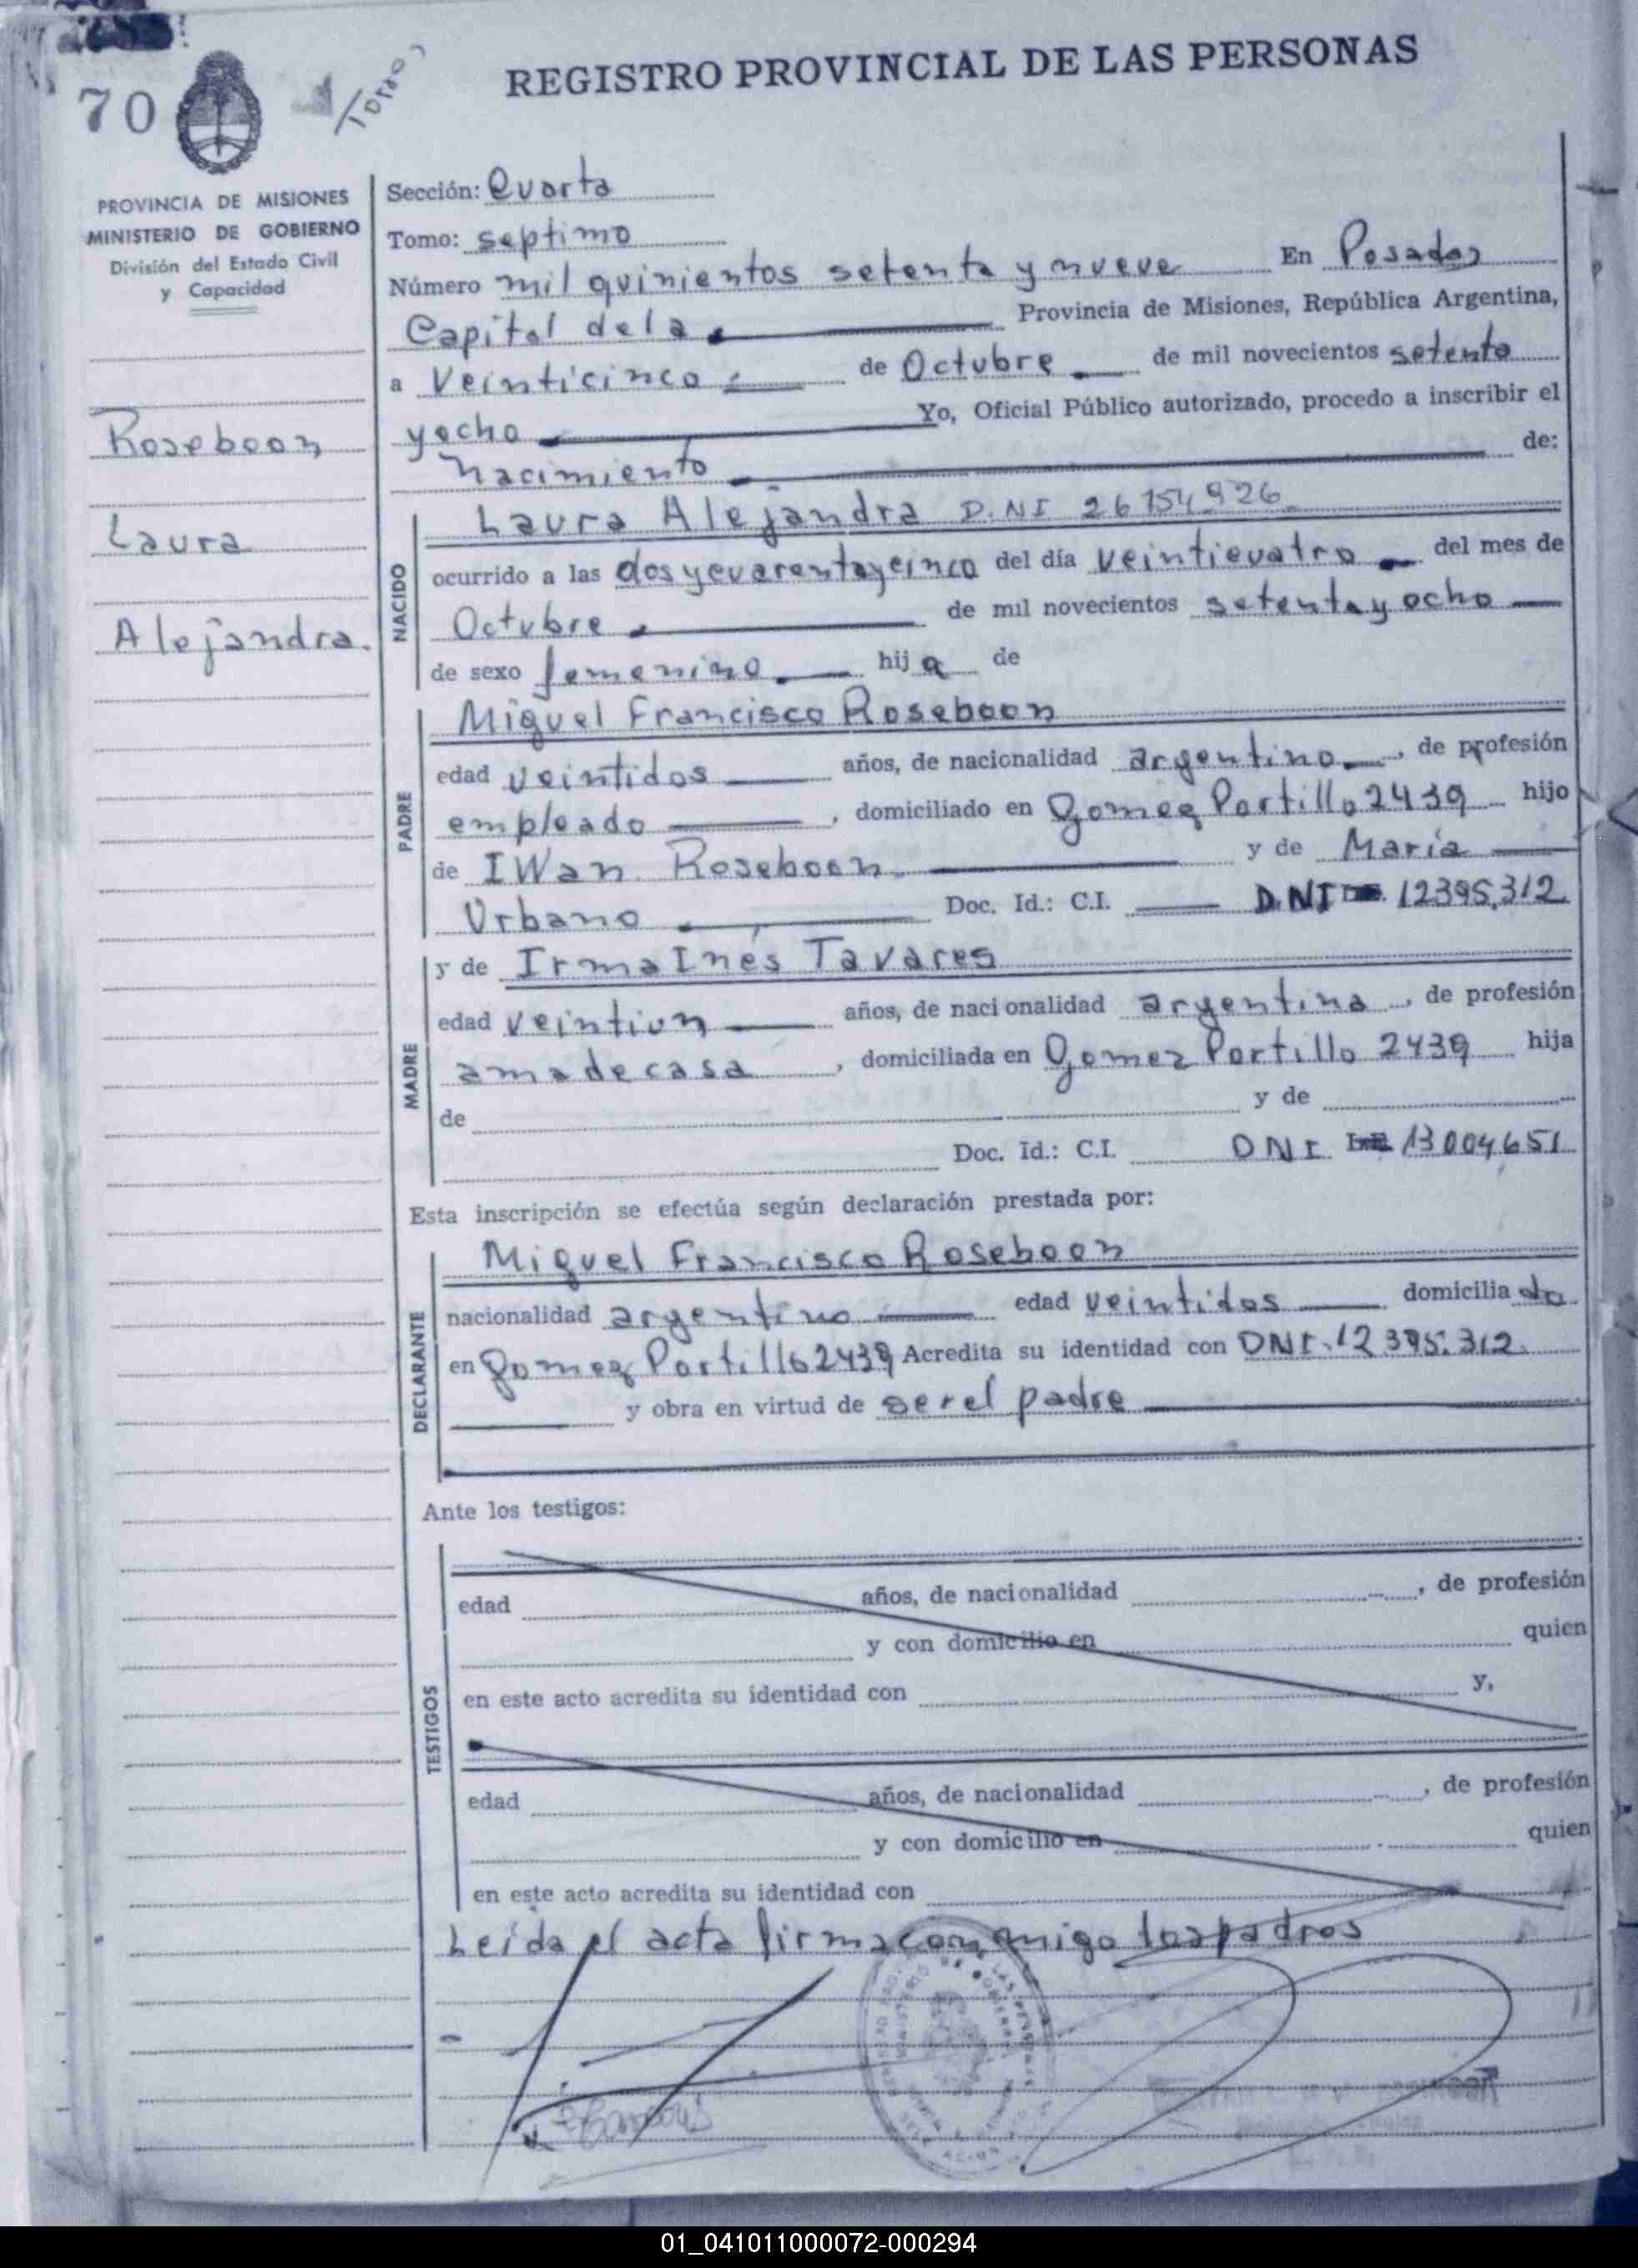 70
REGISTRO PROVINCIAL DE LAS PERSONAS
PROVINCIA DE MISIONES
MINISTERIO DE GOBIERNO
División del Estado Civil
y Capacidad
Roseboon
Laura
Alejandra.
Sección: Cuarta
Tomo: septimo
Número mil quinientos setenta y nueve En Posadas
Capital de la Provincia de Misiones, República Argentina,
a Veinticinco de Octubre de mil novecientos setenta
y ocho Yo, Oficial Público autorizado, procedo a inscribir el
nacimiento de:
NACIDO
Laura Alejandra D.NI 26154926
ocurrido a las dos y cuarenta y cinco del día veinticuatro del mes de
Octubre de mil novecientos setenta y ocho
de sexo femenino hija de
PADRE
Miguel Francisco Roseboon
edad veintidos años, de nacionalidad argentino, de profesión
empleado, domiciliado en Gomez Portillo 2439 hijo
de IWan Roseboon y de María
Urbano Doc. Id.: C.I. D.NI 12395.312
MADRE
y de Irma Inés Tavares
edad veintiun años, de nacionalidad argentina, de profesión
ama de casa, domiciliada en Gomez Portillo 2439 hija
de y de
Doc. Id.: C.I. DNI 13004651
Esta inscripción se efectúa según declaración prestada por:
DECLARANTE
Miguel Francisco Roseboon
nacionalidad argentino edad veintidos domiciliado
en Gomez Portillo 2439 Acredita su identidad con DNI. 12395.312
y obra en virtud de ser el padre
Ante los testigos:
TESTIGOS
edad años, de nacionalidad , de profesión
y con domicilio en quien
en este acto acredita su identidad con y,
edad años, de nacionalidad , de profesión
y con domicilio en quien
en este acto acredita su identidad con
Leida el acta firma conmigo los padres
01_041011000072-000294